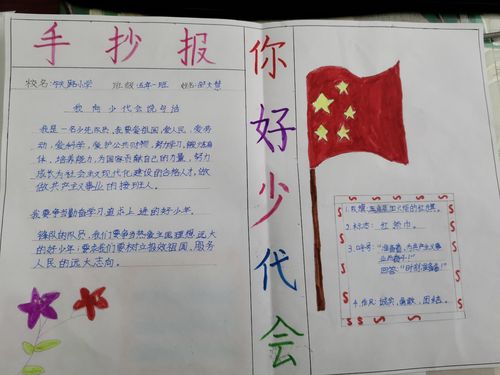 手抄报
校名: 路小学 班级:五年一班 姓名:
我向少代会说句话
我是一名少先队员,我要爱祖国,爱人民,爱劳
动,爱科学,爱护公共财物,努力学习,锻炼身
体,培养能力,为国家贡献自己的力量,努力
成长为社会主义现代化建设的合格人才,做
做共产主义事业的接班人。
我要争当勤奋学习追求上进的好少年。
队员,我们要争当热爱生国理想远大
的好少年;要求我们要树立报效祖国、服务
人民的远大志向。
你好少代会
1.队旗:五角星加火炬的红旗。
2.标志: 红领巾。
3.口号:"准备着,为共产主义事
业而奋斗!"
回答:"时刻准备着!"
4.作风:诚实,勇敢,团结。